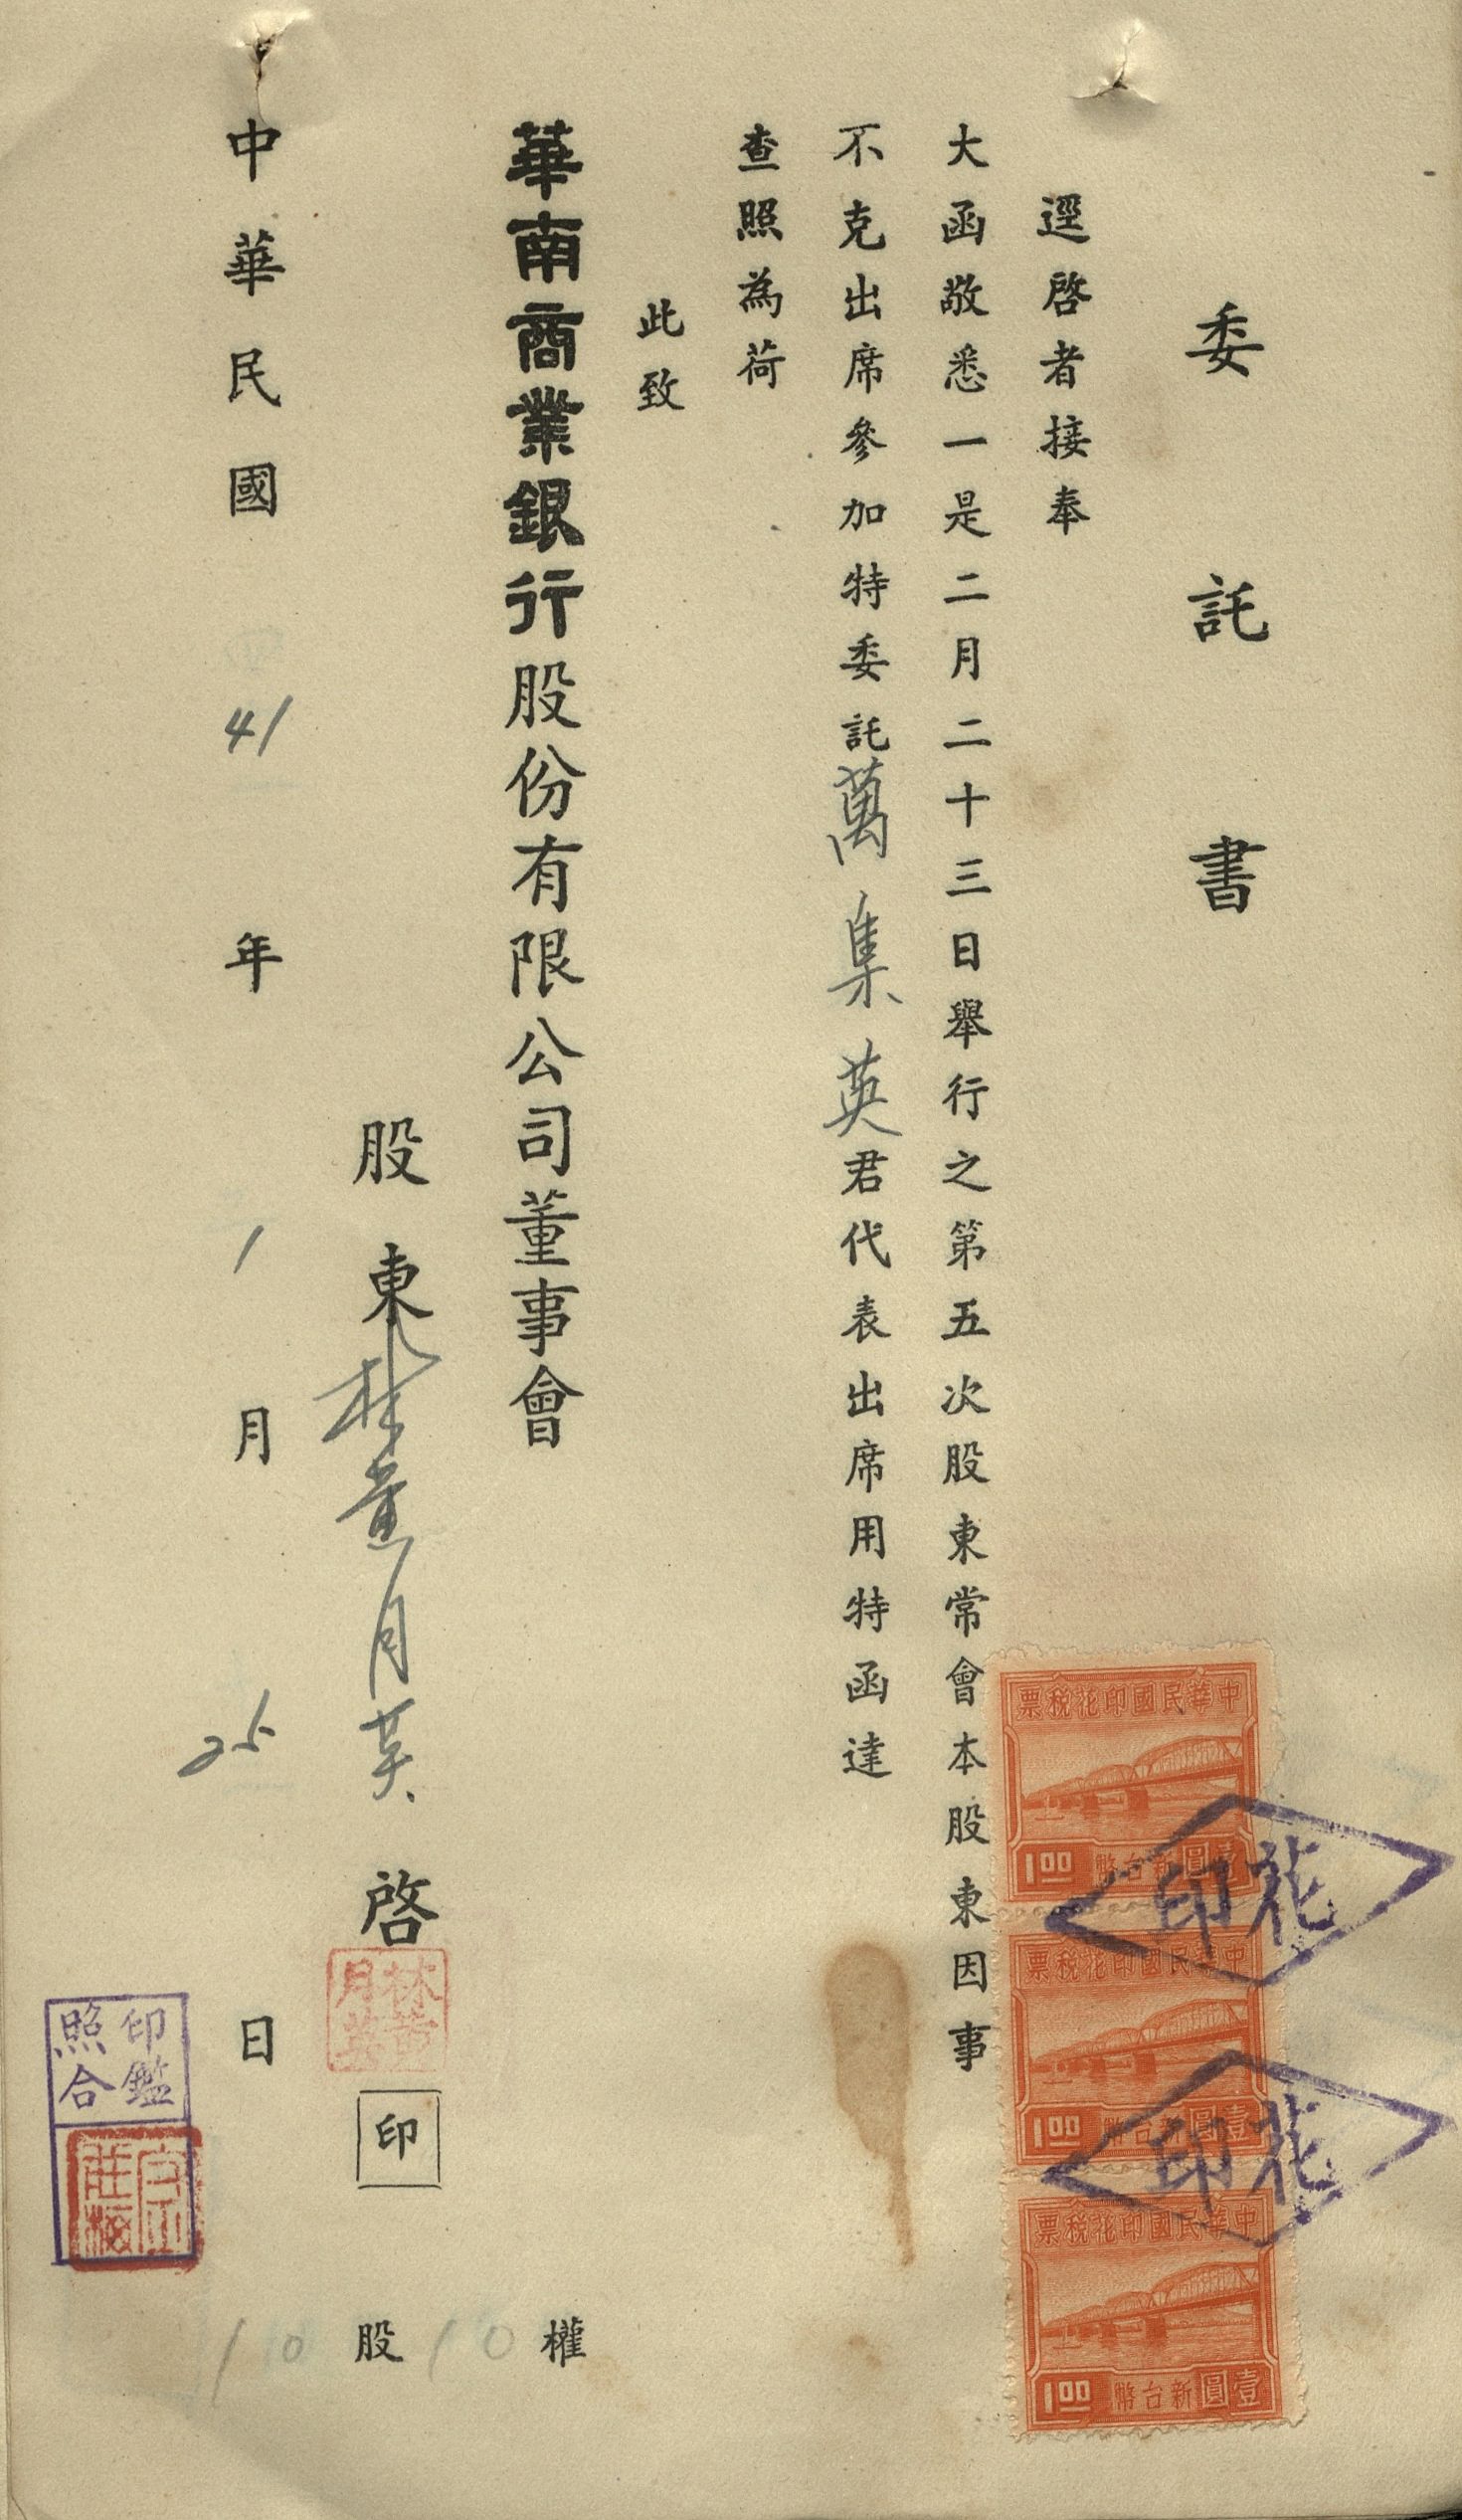 委託書
逕啓者接奉
大函敬悉一是二月二十三日舉行之第五次股東常會本股東因事
不克出席參加特委託萬集英君代表出席用特函達
查照為荷
此致
華南商業銀行股份有限公司董事會
股東林黃月英啓
林黃月英
印
中華民國41年1月25日
印鑑照合
權10
股10
中華民國印花稅票
1.00 新台幣壹圓
中華民國印花稅票
1.00 新台幣壹圓
中華民國印花稅票
1.00 新台幣壹圓
印花
印花